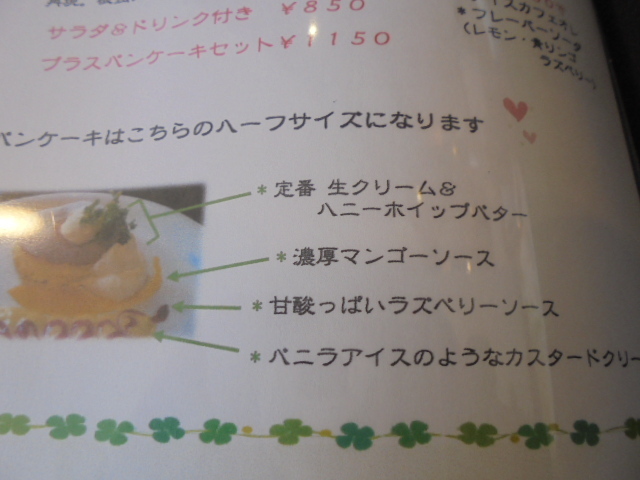 サラダ&ドリンク付き ￥850
プラスパンケーキセット￥1150
アイスカフェオレ
*フレーバーソーダ
(レモン・青リンゴ
ラズベリー)
パンケーキはこちらのハーフサイズになります
*定番 生クリーム&
ハニーホイップバター
*濃厚マンゴーソース
*甘酸っぱいラズベリーソース
*バニラアイスのようなカスタードクリー